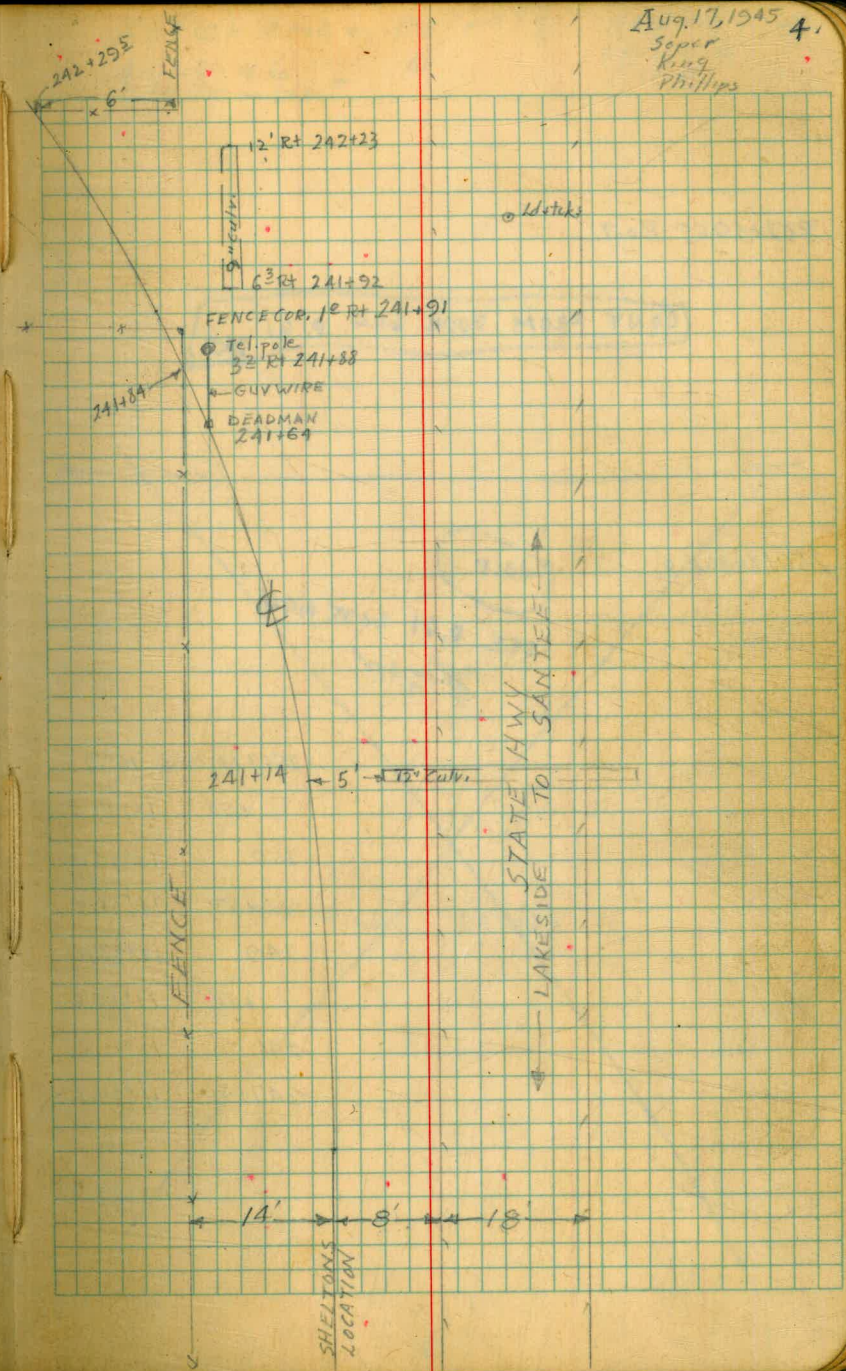 Aug. 17, 1945 4.
Soper
King
Phillips
FENCE
242+29⁵
6'
12' Rt 242+23
9" Culv.
6³ Rt 241+92
FENCE COR. 1⁰ Rt 241+91
Tel. pole
3² Rt 241+88
GUY WIRE
241+84
DEADMAN
241+64
℄
241+14 5' 12" Culv.
STATE HWY
LAKESIDE TO SANTEE
FENCE
14' 8' 18'
SHELTONS
LOCATION